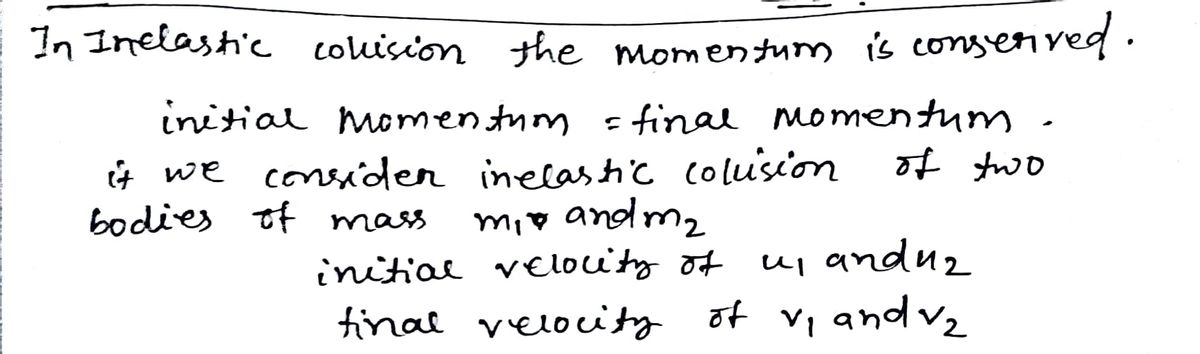 In Inelastic collision the momentum is conserved.
initial momentum = final momentum.
if we consider inelastic collision of two
bodies of mass m₁ and m₂
initial velocity of u₁ and u₂
final velocity of v₁ and v₂